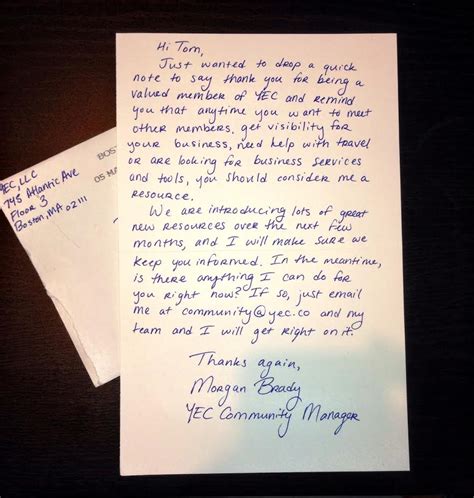 Hi Tom,
Just wanted to drop a quick
note to say thank you for being a
valued member of YEC and remind
you that anytime you want to meet
other members, get visibility for
your business, need help with travel
or are looking for business services
and tools, you should consider me a
resource.
We are introducing lots of great
new resources over the next few
months, and I will make sure we
keep you informed. In the meantime,
is there anything I can do for
you right now? If so, just email
me at community@yec.co and my
team and I will get right on it.
Thanks again,
Morgan Brady
YEC Community Manager
YEC, LLC
745 Atlantic Ave
Floor 3
Boston, MA 02111
BOS
05 MA